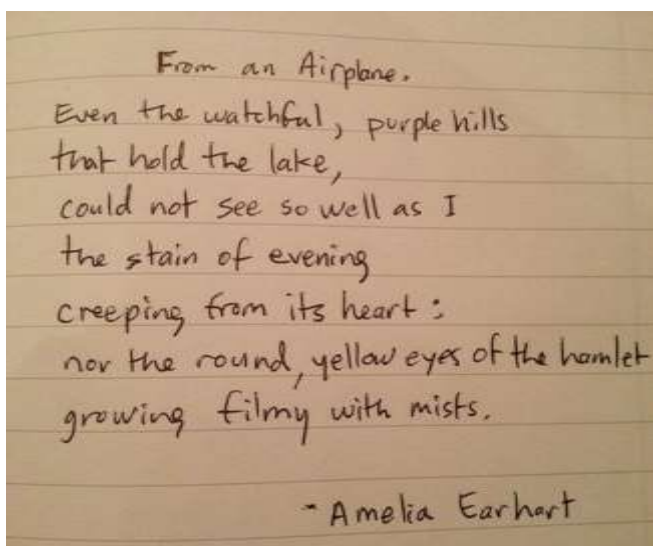 From an Airplane.
Even the watchful, purple hills
that hold the lake,
could not see so well as I
the stain of evening
creeping from its heart;
nor the round, yellow eyes of the hamlet
growing filmy with mists.
- Amelia Earhart